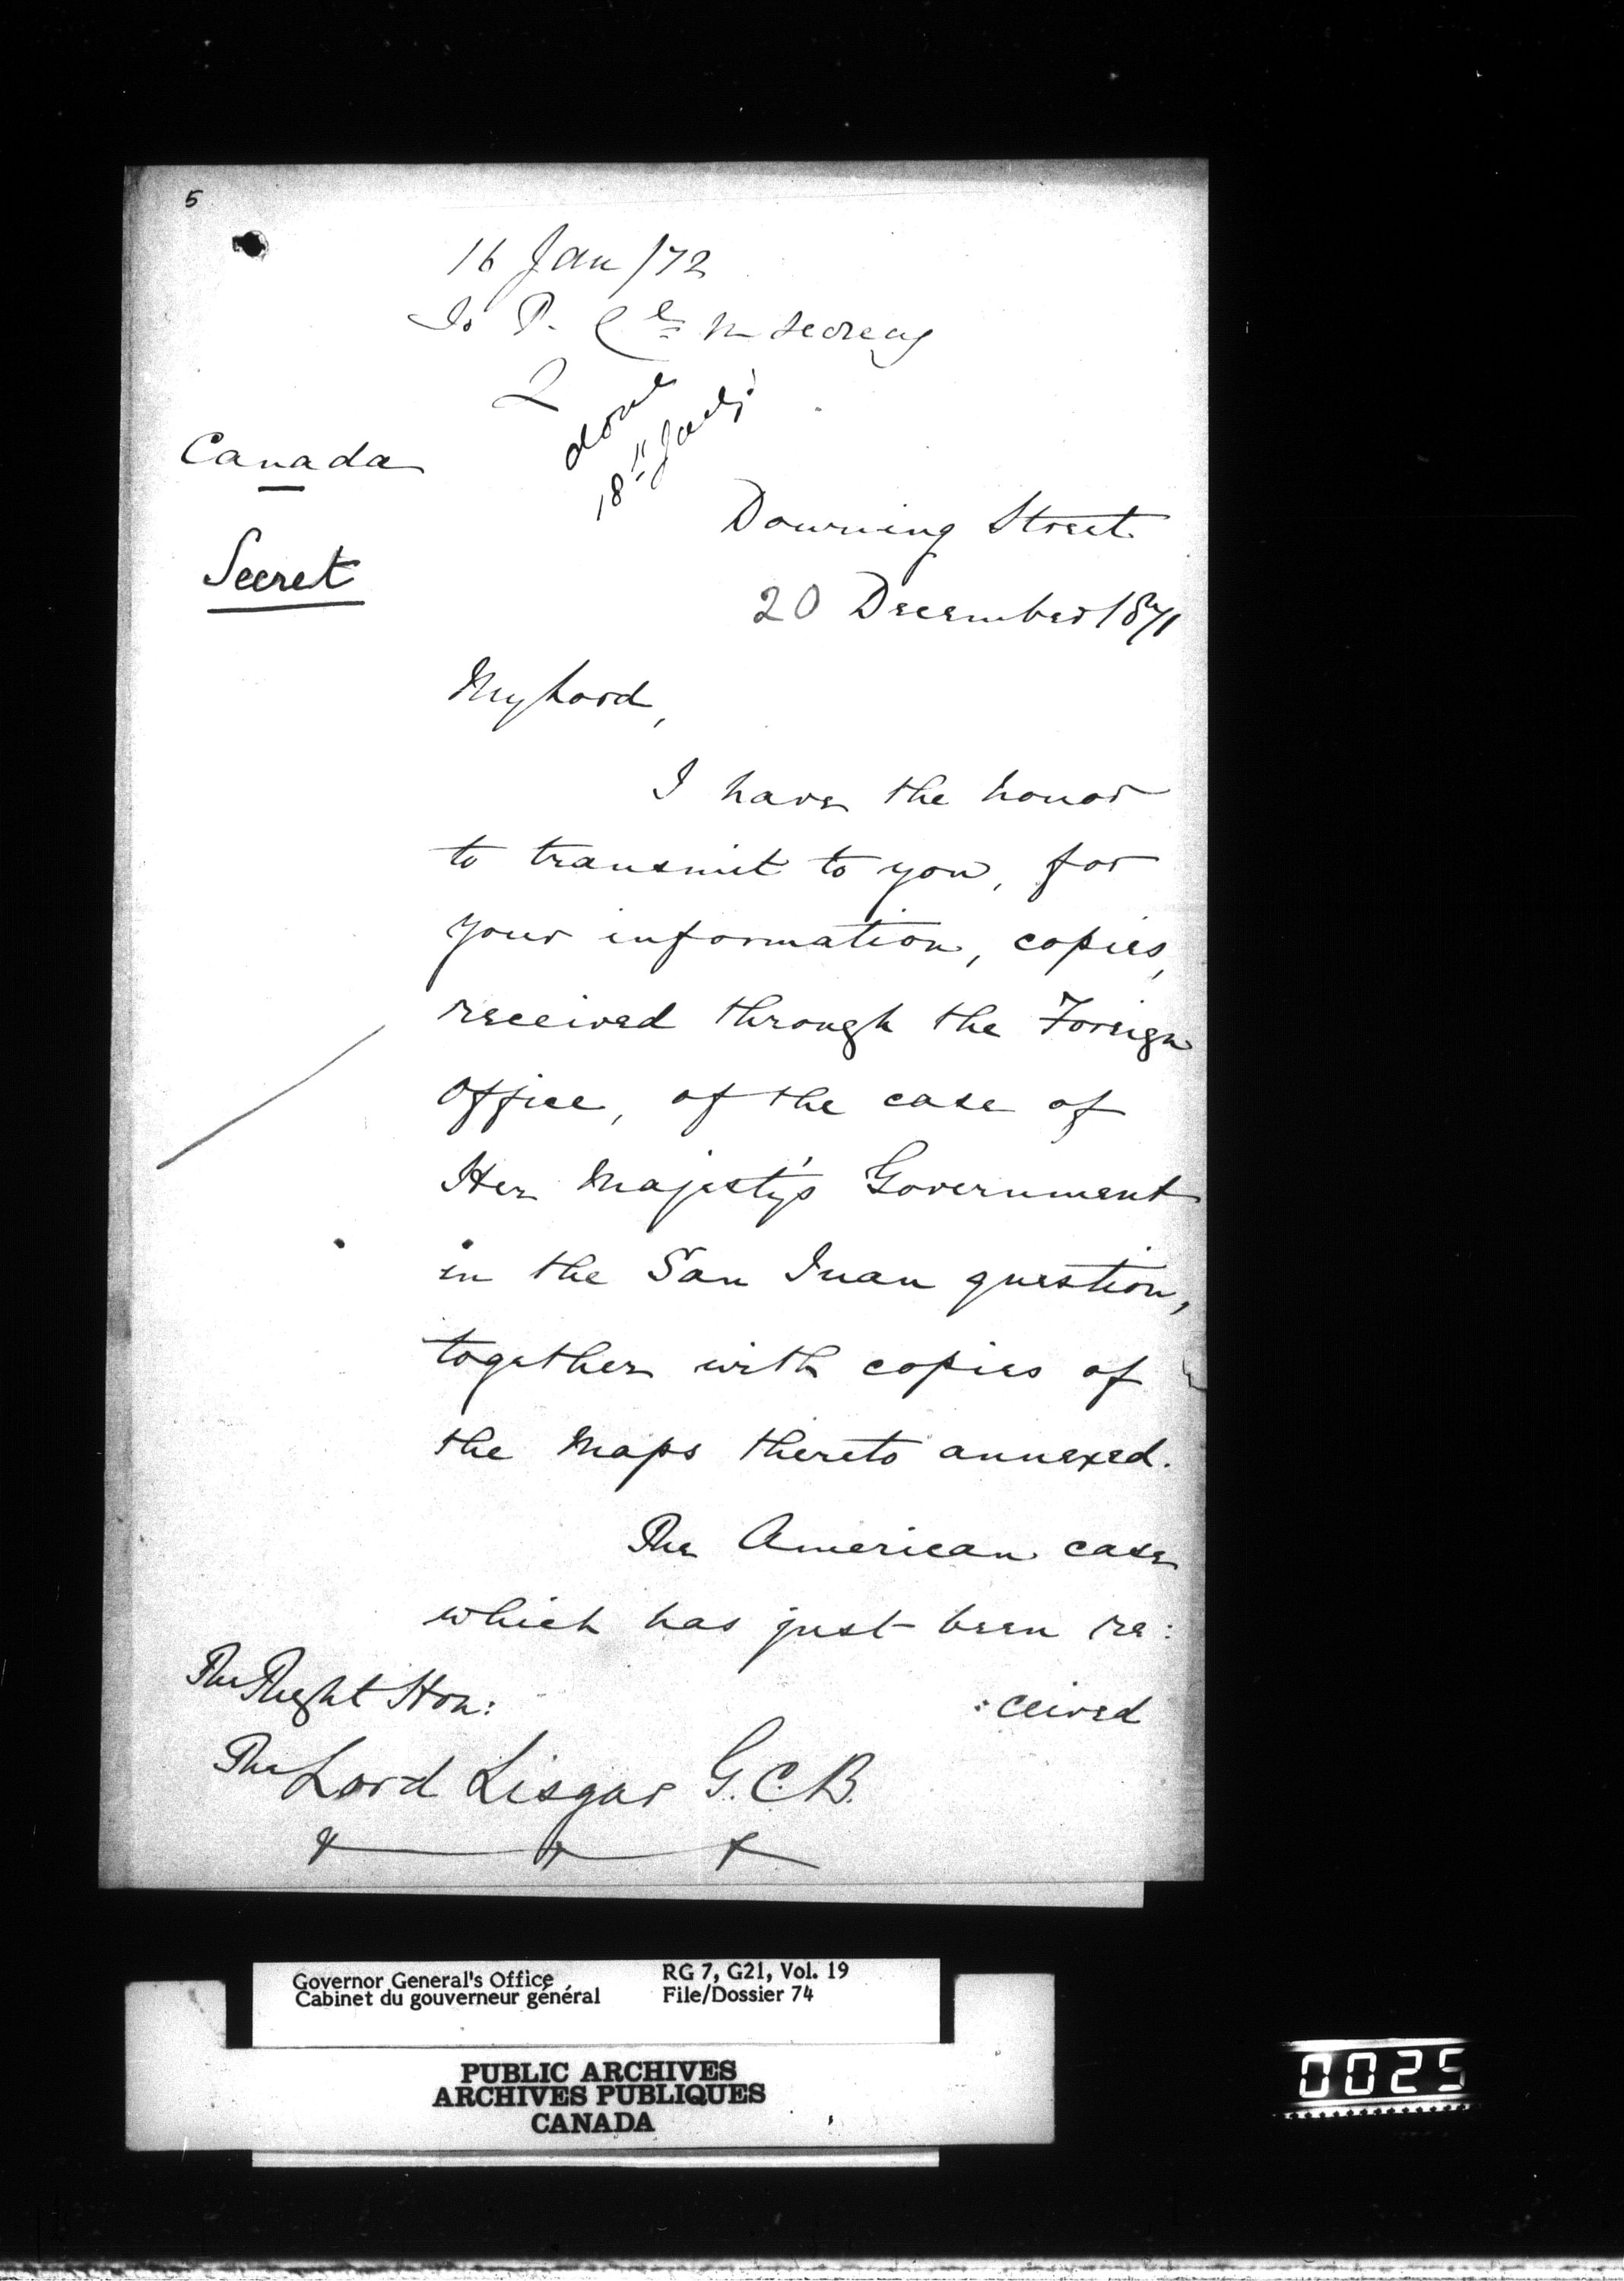 5
16 Jan /72
To P. Cl in secrecy
L
done
18th Jany
Canada
Secret
Downing Street
20 December 1871
My Lord,
I have the honor
to transmit to you, for
your information, copies,
received through the Foreign
Office, of the case of
Her Majesty's Government
in the San Juan question,
together with copies of
the Maps thereto annexed.
The American case
which has just been re:
:ceived
The Right Hon:
The Lord Lisgar G.C.B.
Governor General's Office
Cabinet du gouverneur général
RG 7, G21, Vol. 19
File/Dossier 74
PUBLIC ARCHIVES
ARCHIVES PUBLIQUES
CANADA
0025